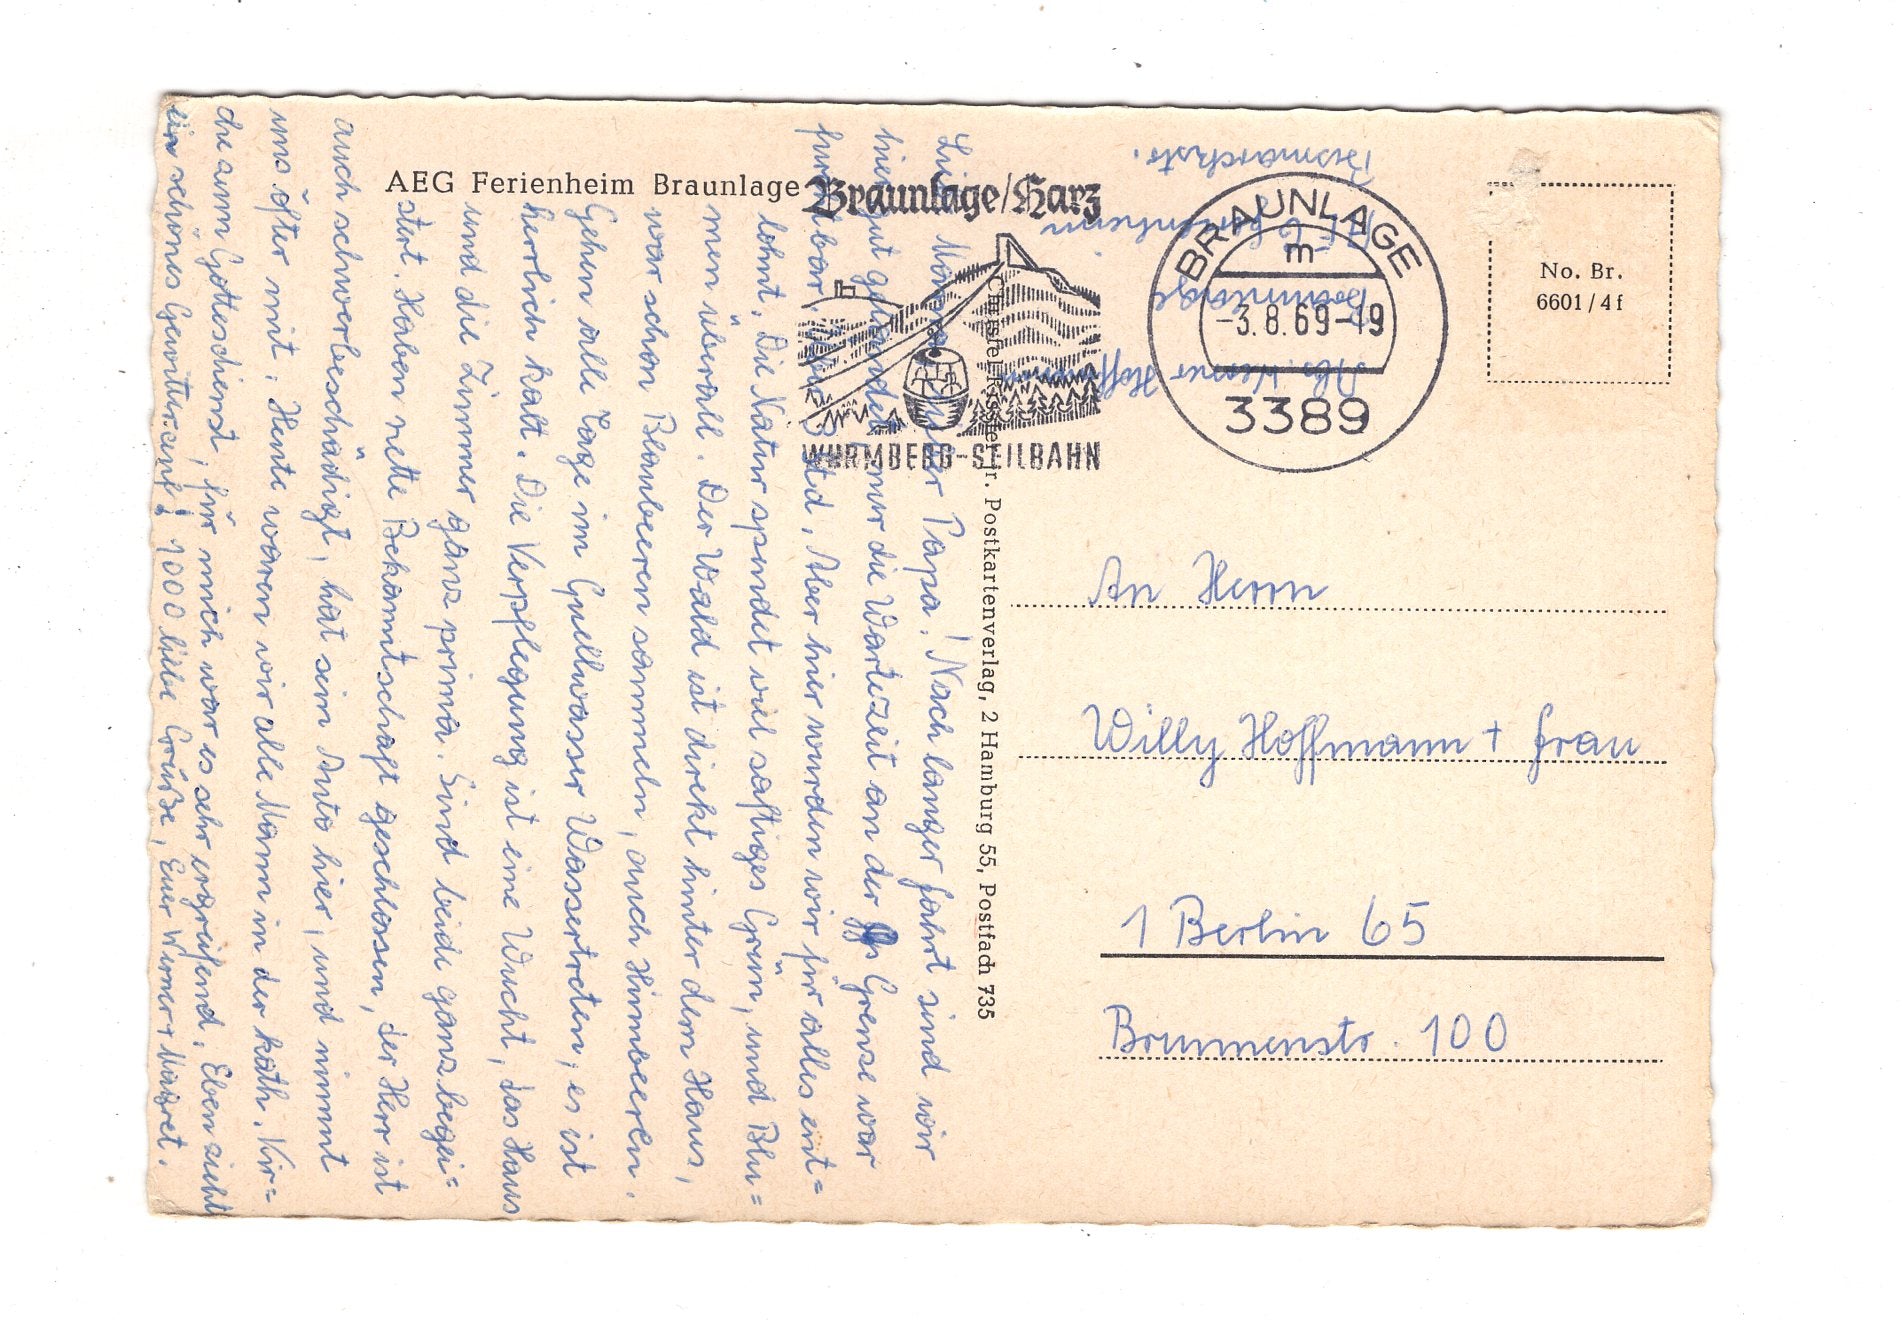 AEG Ferienheim Braunlage
Braunlage/Harz
WURMBERG-SEILBAHN
BRAUNLAGE
m
-3.8.69-19
3389
No. Br.
6601/4f
Abs. Werner Hoffmann
Braunlage
AEG Ferienheim
Bismarckstr.
Christel Kessler jr. Postkartenverlag, 2 Hamburg 55, Postfach 735
Mama, lieber Papa! Nach langer Fahrt sind wir
hier gut gelandet, nur die Wartezeit an der Grenze war
furchtbar, Std. Aber hier wurden wir für alles ent=
lohnt. Die Natur spendet viel saftiges Grün, und Blu=
men überall. Der Wald ist direkt hinter dem Haus,
war schon Blaubeeren sammeln, auch Himbeeren.
Gehen alle Tage im Quellwasser Wassertreten, es ist
herrlich kalt. Die Verpflegung ist eine Wucht, das Haus
und die Zimmer ganz prima. Sind beide ganz begei=
stert. Haben nette Bekanntschaft geschlossen, der Herr ist
auch schwerbeschädigt, hat sein Auto hier, und nimmt
uns öfter mit. Heute waren wir alle Mann in der kath. Kir=
che zum Gottesdienst, für mich war es sehr ergreifend. Eben zieht
ein schönes Gewitter auf! 1000 liebe Grüße, Euer Werner + Margret.
An Herrn
Willy Hoffmann + Frau
1 Berlin 65
Brunnenstr. 100